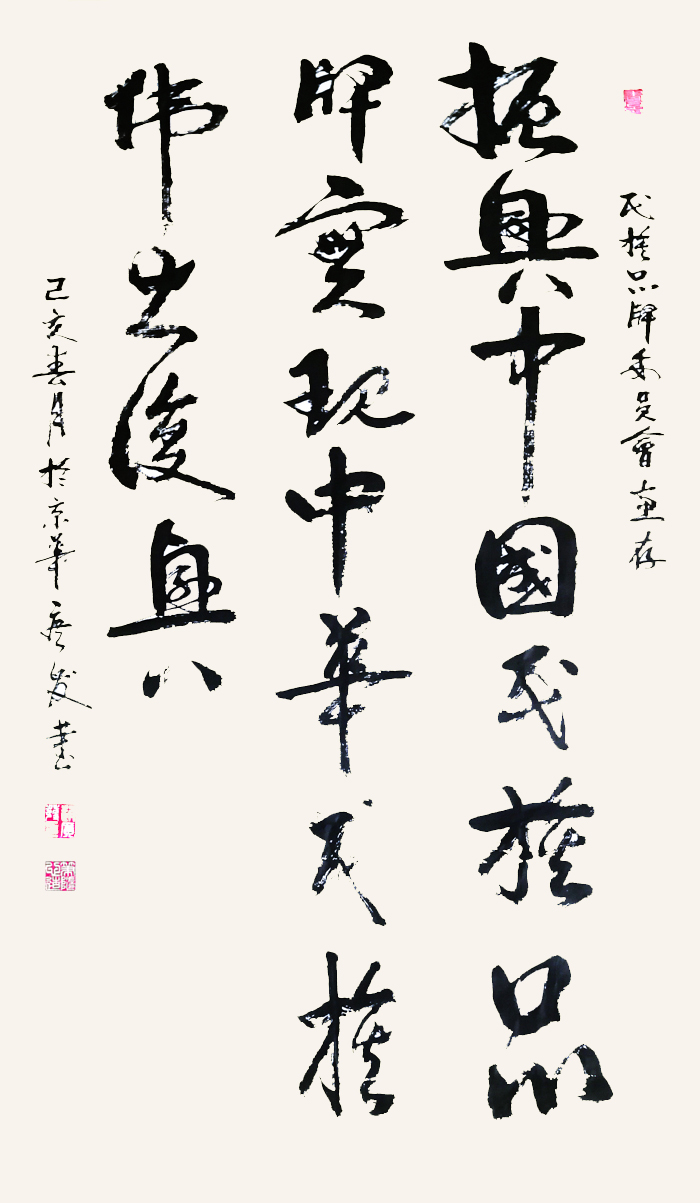 民族品牌委員會惠存
振興中國民族品
牌實現中華民族
偉大復興
己亥春月於京華
發書